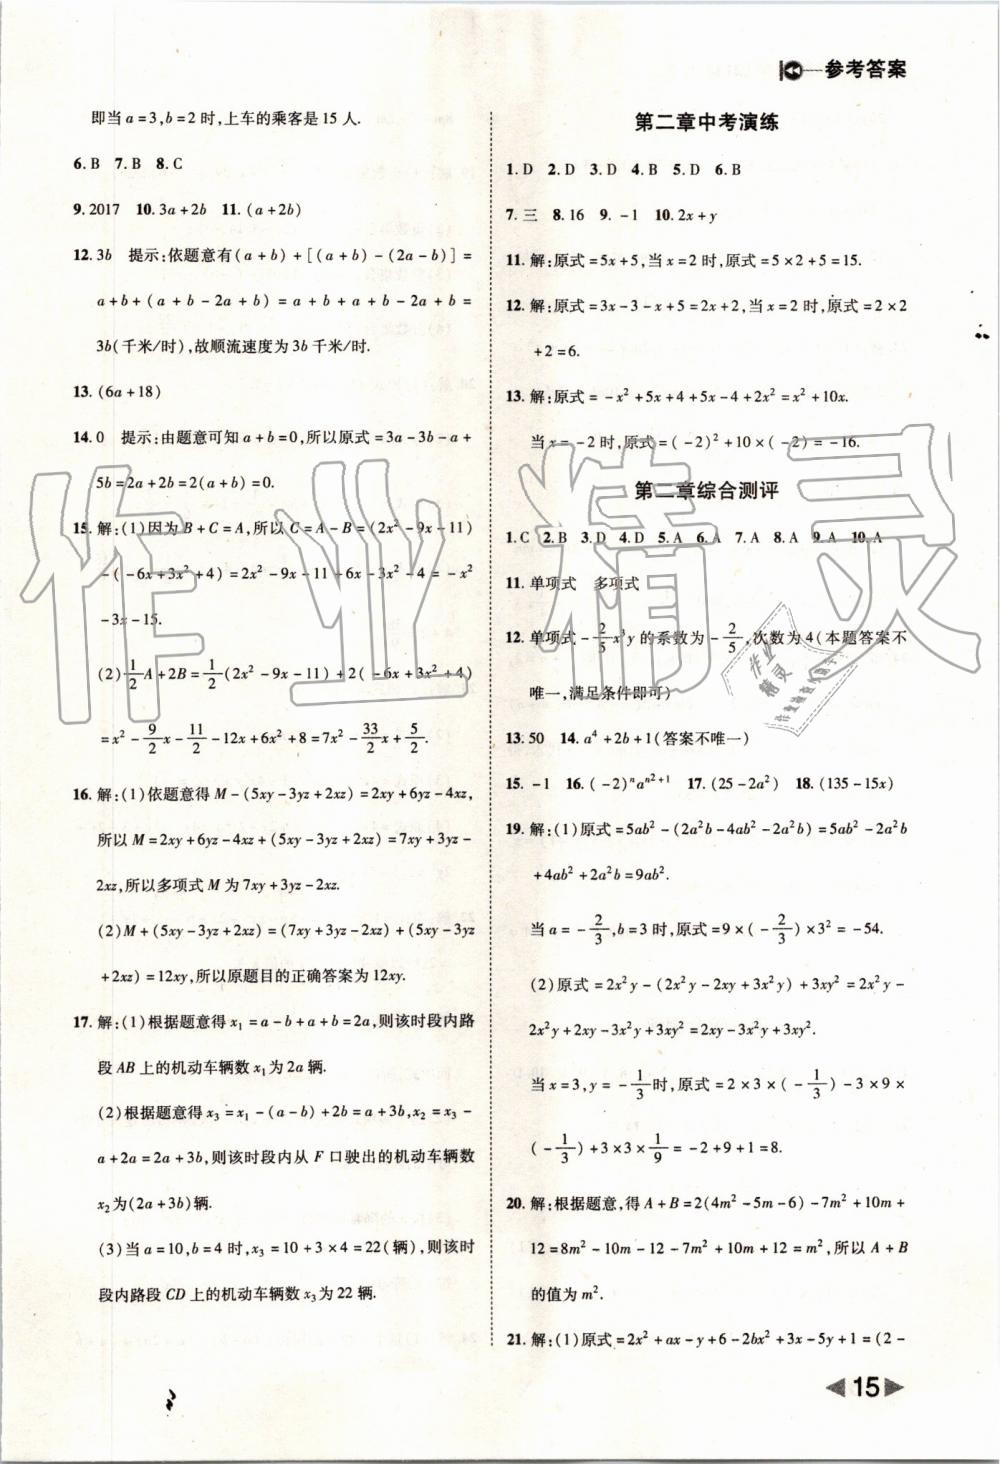 参考答案
即当 a=3,b=2 时,上车的乘客是 15 人.
6. B 7. B 8. C
9. 2017 10. 3a+2b 11. (a+2b)
12. 3b 提示:依题意有(a+b)+[(a+b)-(2a-b)]=
a+b+(a+b-2a+b)=a+b+a+b-2a+b=
3b(千米/时),故顺流速度为 3b 千米/时.
13. (6a+18)
14. 0 提示:由题意可知 a+b=0,所以原式=3a-3b-a+
5b=2a+2b=2(a+b)=0.
15. 解:(1)因为 B+C=A,所以 C=A-B=(2x²-9x-11)
-(-6x+3x²+4)=2x²-9x-11+6x-3x²-4=-x²
-3x-15.
(2)1/2A+2B=1/2(2x²-9x-11)+2(-6x+3x²+4)
=x²-9/2x-11/2-12x+6x²+8=7x²-33/2x+5/2.
16. 解:(1)依题意得 M-(5xy-3yz+2xz)=2xy+6yz-4xz,
所以 M=2xy+6yz-4xz+(5xy-3yz+2xz)=7xy+3yz-
2xz,所以多项式 M 为 7xy+3yz-2xz.
(2)M+(5xy-3yz+2xz)=(7xy+3yz-2xz)+(5xy-3yz
+2xz)=12xy,所以原题目的正确答案为 12xy.
17. 解:(1)根据题意得 x₁=a-b+a+b=2a,则该时段内路
段 AB 上的机动车辆数 x₁为 2a 辆.
(2)根据题意得 x₃=x₁-(a-b)+2b=a+3b,x₂=x₃-
a+2a=2a+3b,则该时段内从 F 口驶出的机动车辆数
x₂为(2a+3b)辆.
(3)当 a=10,b=4 时,x₃=10+3×4=22(辆),则该时
段内路段 CD 上的机动车辆数 x₃为 22 辆.
第二章中考演练
1. D 2. D 3. D 4. B 5. D 6. B
7. 三 8. 16 9. -1 10. 2x+y
11. 解:原式=5x+5,当 x=2 时,原式=5×2+5=15.
12. 解:原式=3x-3-x+5=2x+2,当 x=2 时,原式=2×2
+2=6.
13. 解:原式=-x²+5x+4+5x-4+2x²=x²+10x.
当 x=-2 时,原式=(-2)²+10×(-2)=-16.
第二章综合测评
1. C 2. B 3. D 4. D 5. A 6. A 7. A 8. A 9. A 10. A
11. 单项式 多项式
12. 单项式-2/5x³y 的系数为-2/5,次数为 4(本题答案不
唯一,满足条件即可)
13. 50 14. a⁴+2b+1(答案不唯一)
15. -1 16. (-2)ⁿaⁿ²⁺¹ 17. (25-2a²) 18. (135-15x)
19. 解:(1)原式=5ab²-(2a²b-4ab²-2a²b)=5ab²-2a²b
+4ab²+2a²b=9ab².
当 a=-2/3,b=3 时,原式=9×(-2/3)×3²=-54.
(2)原式=2x²y-(2x²y-2xy+3x²y)+3xy²=2x²y-
2x²y+2xy-3x²y+3xy²=2xy-3x²y+3xy².
当 x=3,y=-1/3时,原式=2×3×(-1/3)-3×9×
(-1/3)+3×3×1/9=-2+9+1=8.
20. 解:根据题意,得 A+B=2(4m²-5m-6)-7m²+10m+
12=8m²-10m-12-7m²+10m+12=m²,所以 A+B
的值为 m².
21. 解:(1)原式=2x²+ax-y+6-2bx²+3x-5y+1=(2-
15
作业精灵
作业精灵